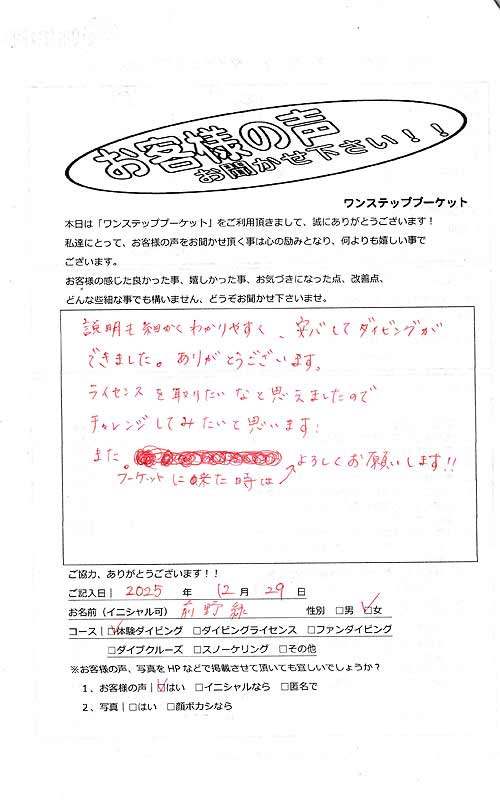 お客様の声
お聞かせ下さい！！
ワンステッププーケット
本日は「ワンステッププーケット」をご利用頂きまして、誠にありがとうございます！
私達にとって、お客様の声をお聞かせ頂く事は心の励みとなり、何よりも嬉しい事で
ございます。
お客様の感じた良かった事、嬉しかった事、お気づきになった点、改善点、
どんな些細な事でも構いません、どうぞお聞かせ下さいませ。
説明も細かくわかりやすく、安心してダイビングが
できました。ありがとうございます。
ライセンスを取りたいなと思えましたので
チャレンジしてみたいと思います！
また。 よろしくお願いします!!
プーケットに来た時は
ご協力、ありがとうございます！！
ご記入日| 2025 年 12 月 29 日
お名前（イニシャル可） 前野 性別 □男 ☑女
コース| ☑体験ダイビング □ダイビングライセンス □ファンダイビング
□ダイブクルーズ □スノーケリング □その他
※お客様の声、写真をHPなどで掲載させて頂いても宜しいでしょうか？
1、お客様の声| ☑はい □イニシャルなら □匿名で
2、写真| □はい □顔ボカシなら